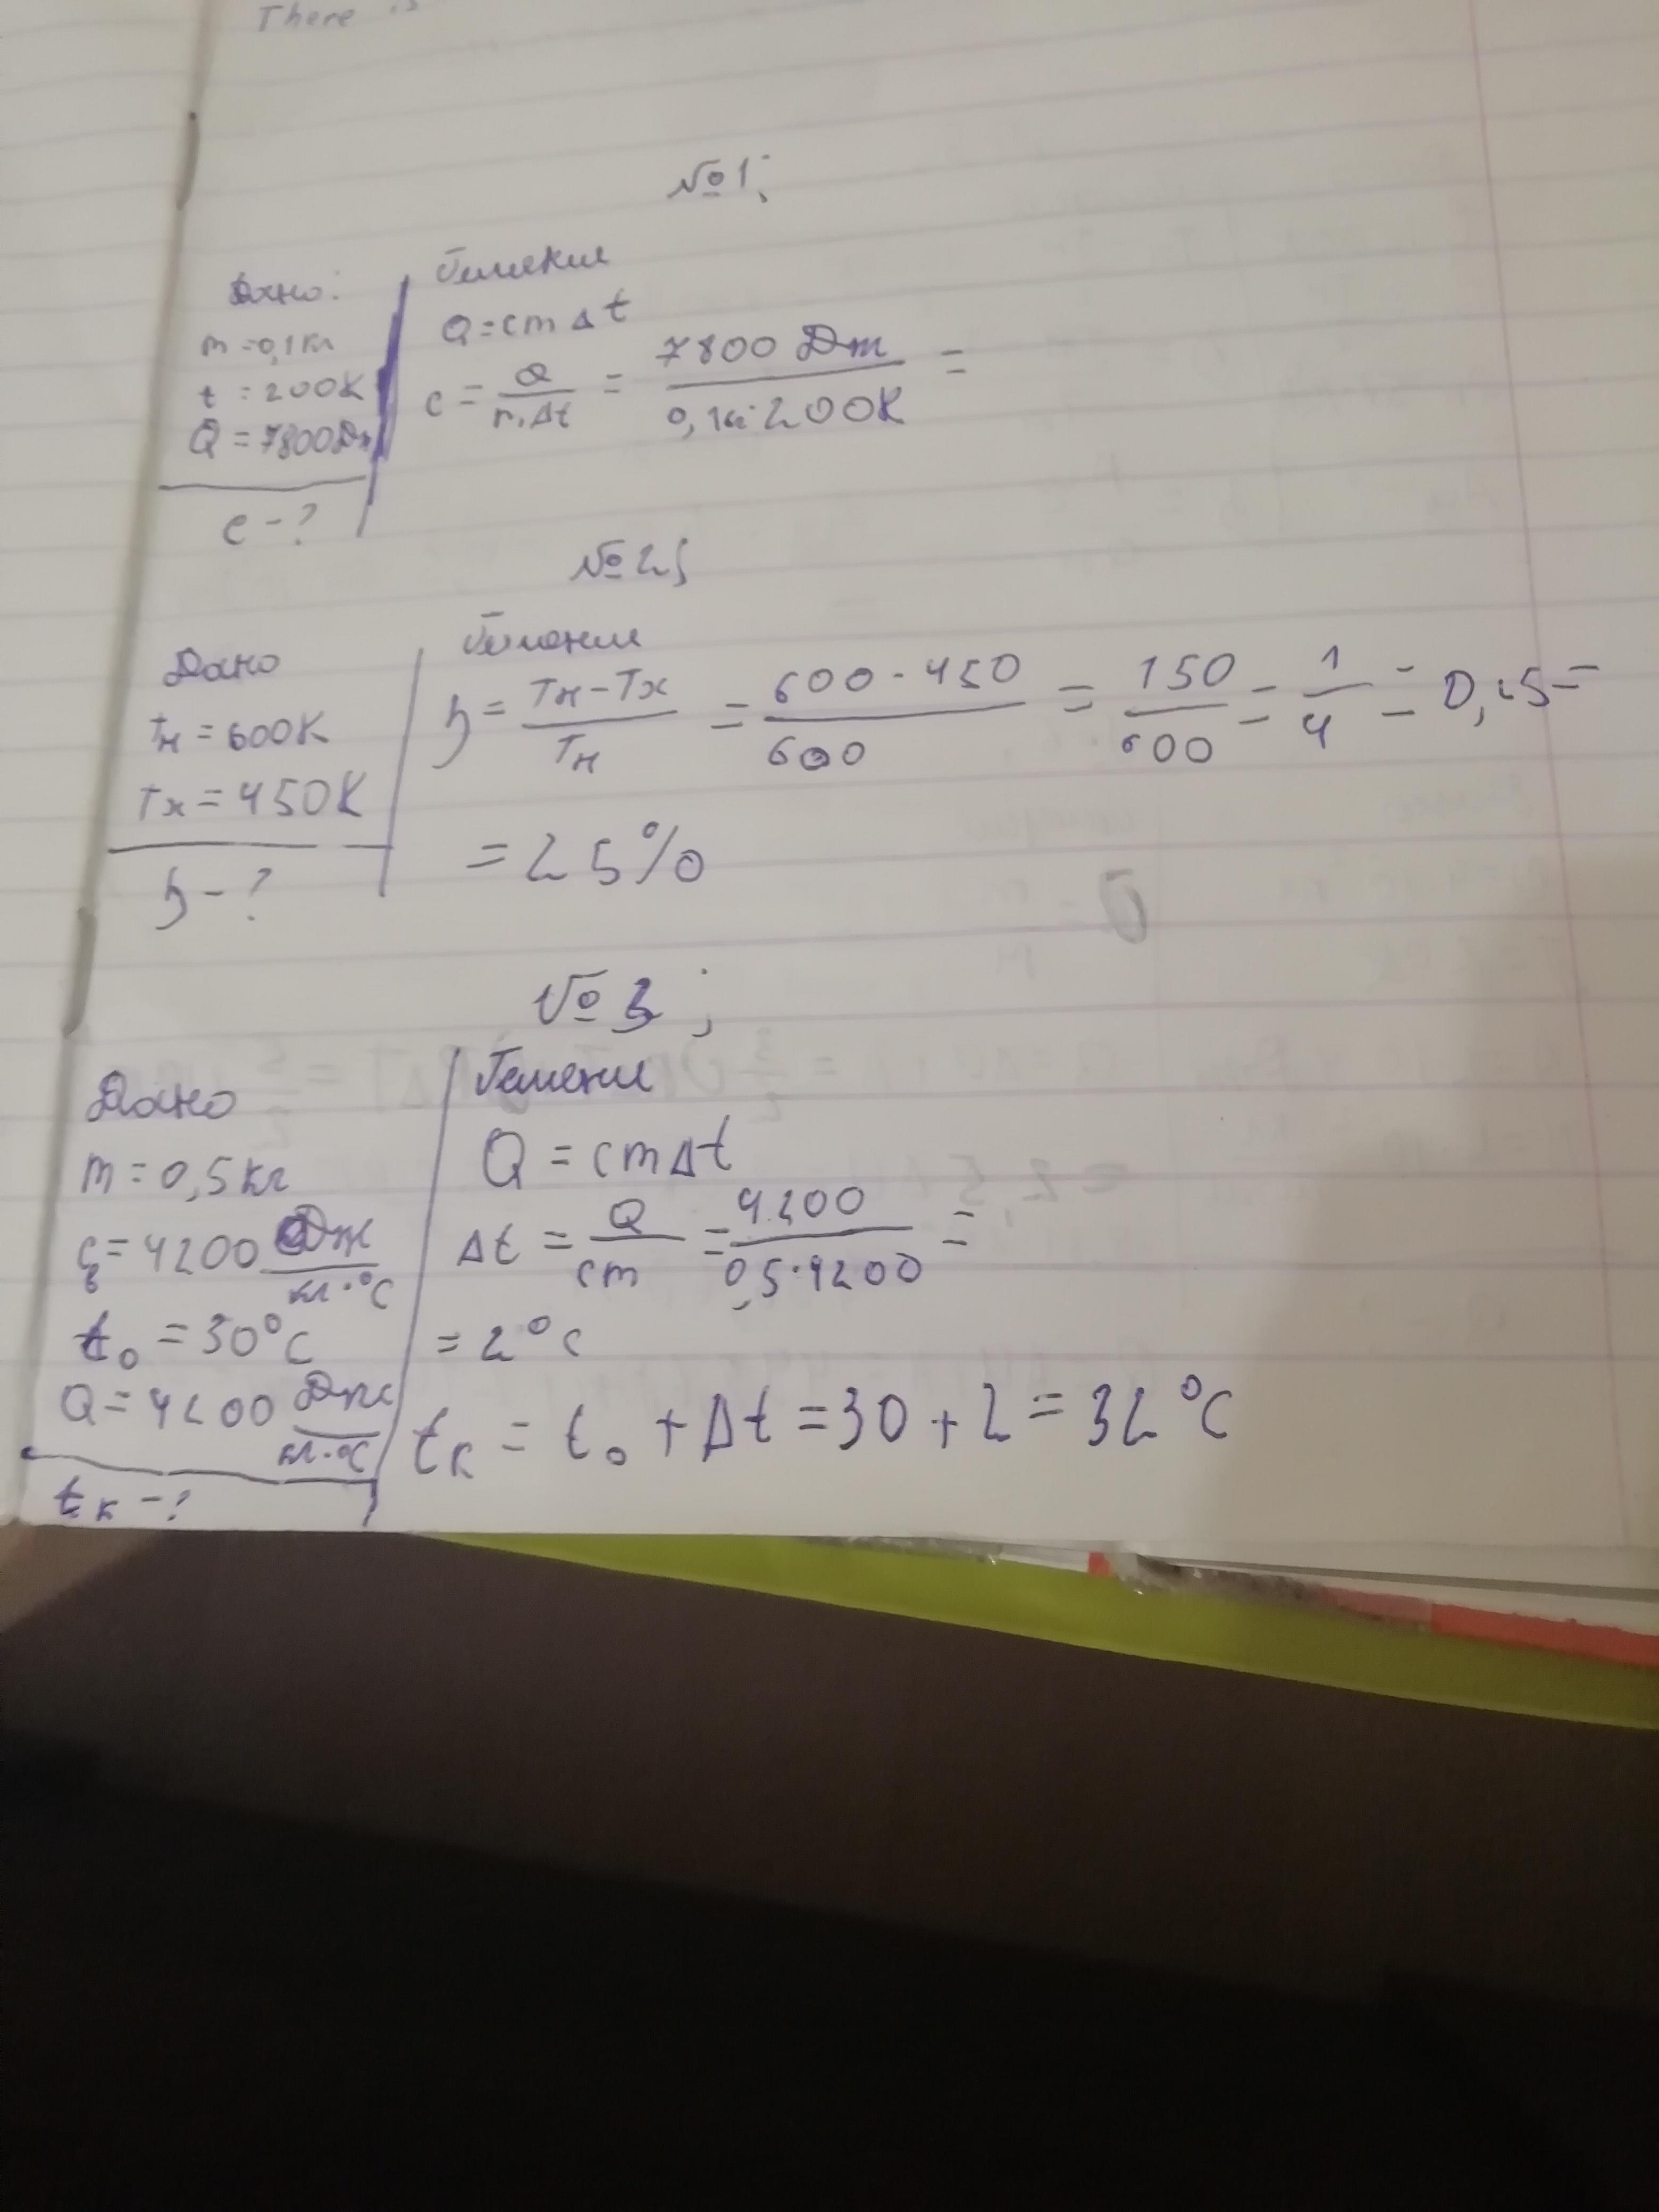 There is
№1;
Дано:
m=0,1кг
t=200К
Q=7800Дж
c-?
Решение
Q=cm∆t
c=Q/m.∆t = 7800 Дж/0,1кг·200К =
№2;
Дано
Tн=600К
Tх=450К
η-?
Решение
η=Tн-Tх/Tн = 600-450/600 = 150/600 = 1/4 = 0,25=
=25%
№3;
Дано
m=0,5кг
cв=4200 Дж/кг·°C
t₀=30°C
Q=4200 Дж/кг·°C
tк-?
Решение
Q=cm∆t
∆t=Q/cm=4200/0,5·4200=
=2°C
tк=t₀+∆t=30+2=32°C